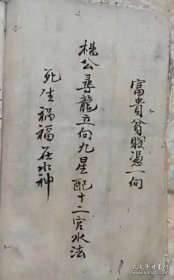 富貴貧賤憑一向
楊公尋龍立向九星配十二宮水法
死生祸福在水神